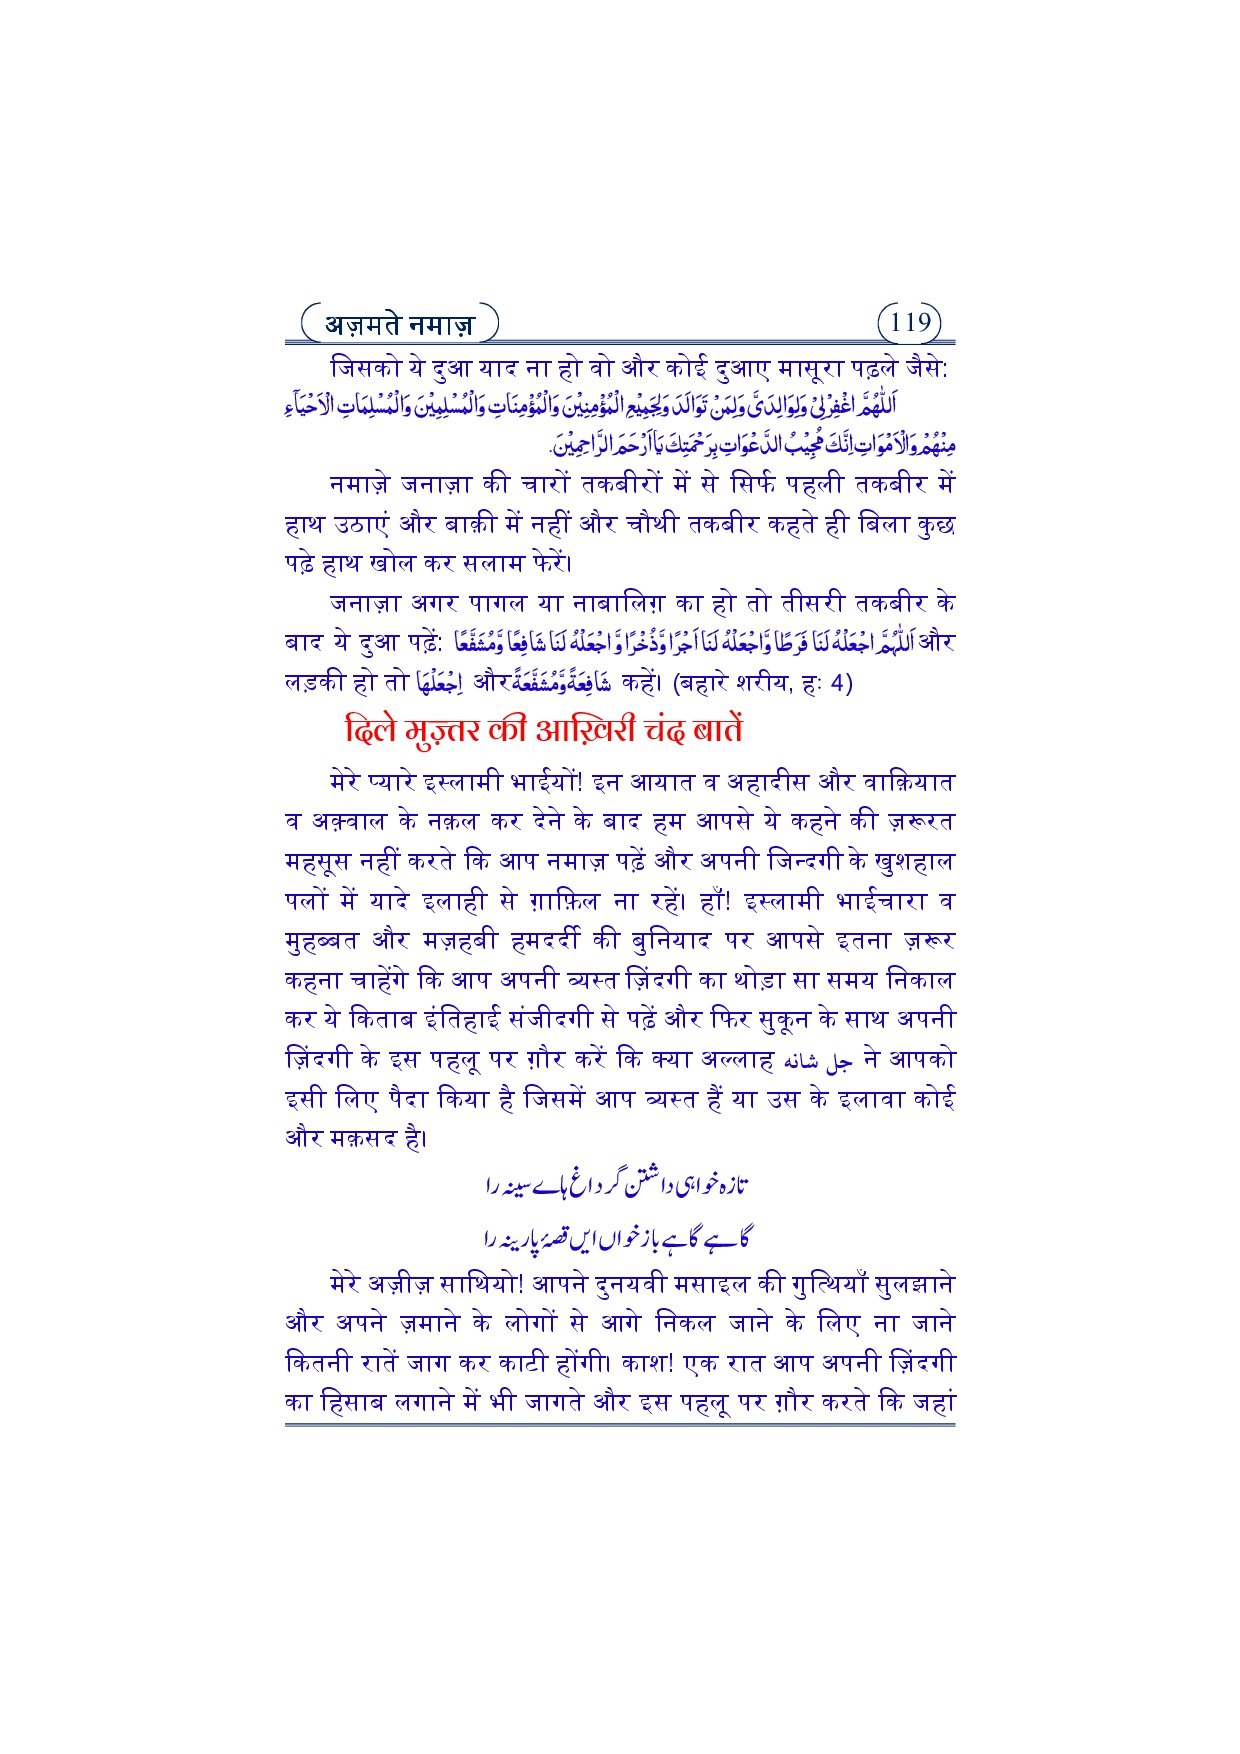 अज़मते नमाज़
119
जिसको ये दुआ याद ना हो वो और कोई दुआए मासूरा पढ़ले जैसे:
اَللّٰهُمَّ اغْفِرْلِيْ وَلِوَالِدَيَّ وَلِمَنْ تَوَالَدَ وَلِجَمِيْعِ الْمُؤْمِنِيْنَ وَالْمُؤْمِنَاتِ وَالْمُسْلِمِيْنَ وَالْمُسْلِمَاتِ الْاَحْيَآءِ
مِنْهُمْ وَالْاَمْوَاتِ اِنَّكَ مُجِيْبُ الدَّعْوَاتِ بِرَحْمَتِكَ يَا اَرْحَمَ الرَّاحِمِيْنَ.
नमाज़े जनाज़ा की चारों तकबीरों में से सिर्फ पहली तकबीर में
हाथ उठाएं और बाक़ी में नहीं और चौथी तकबीर कहते ही बिला कुछ
पढ़े हाथ खोल कर सलाम फेरें।
जनाज़ा अगर पागल या नाबालिग़ का हो तो तीसरी तकबीर के
बाद ये दुआ पढ़ें: اَللّٰهُمَّ اجْعَلْهُ لَنَا فَرَطًا وَّاجْعَلْهُ لَنَا اَجْرًا وَّذُخْرًا وَّاجْعَلْهُ لَنَا شَافِعًا وَّمُشَفَّعًا और
लड़की हो तो اِجْعَلْهَا और شَافِعَةً وَّمُشَفَّعَةً कहें। (बहारे शरीय, हः 4)
दिले मुज़्तर की आख़िरी चंद बातें
मेरे प्यारे इस्लामी भाईयों! इन आयात व अहादीस और वाक़ियात
व अक़्वाल के नक़ल कर देने के बाद हम आपसे ये कहने की ज़रूरत
महसूस नहीं करते कि आप नमाज़ पढ़ें और अपनी जिन्दगी के खुशहाल
पलों में यादे इलाही से ग़ाफ़िल ना रहें। हाँ! इस्लामी भाईचारा व
मुहब्बत और मज़हबी हमदर्दी की बुनियाद पर आपसे इतना ज़रूर
कहना चाहेंगे कि आप अपनी व्यस्त ज़िंदगी का थोड़ा सा समय निकाल
कर ये किताब इंतिहाई संजीदगी से पढ़ें और फिर सुकून के साथ अपनी
ज़िंदगी के इस पहलू पर ग़ौर करें कि क्या अल्लाह جل شانه ने आपको
इसी लिए पैदा किया है जिसमें आप व्यस्त हैं या उस के इलावा कोई
और मक़सद है।
تازہ خواہی داشتن گر داغ ہاے سینہ را
گاہے گاہے باز خواں ایں قصۂ پارینہ را
मेरे अज़ीज़ साथियो! आपने दुनयवी मसाइल की गुत्थियाँ सुलझाने
और अपने ज़माने के लोगों से आगे निकल जाने के लिए ना जाने
कितनी रातें जाग कर काटी होंगी। काश! एक रात आप अपनी ज़िंदगी
का हिसाब लगाने में भी जागते और इस पहलू पर ग़ौर करते कि जहां